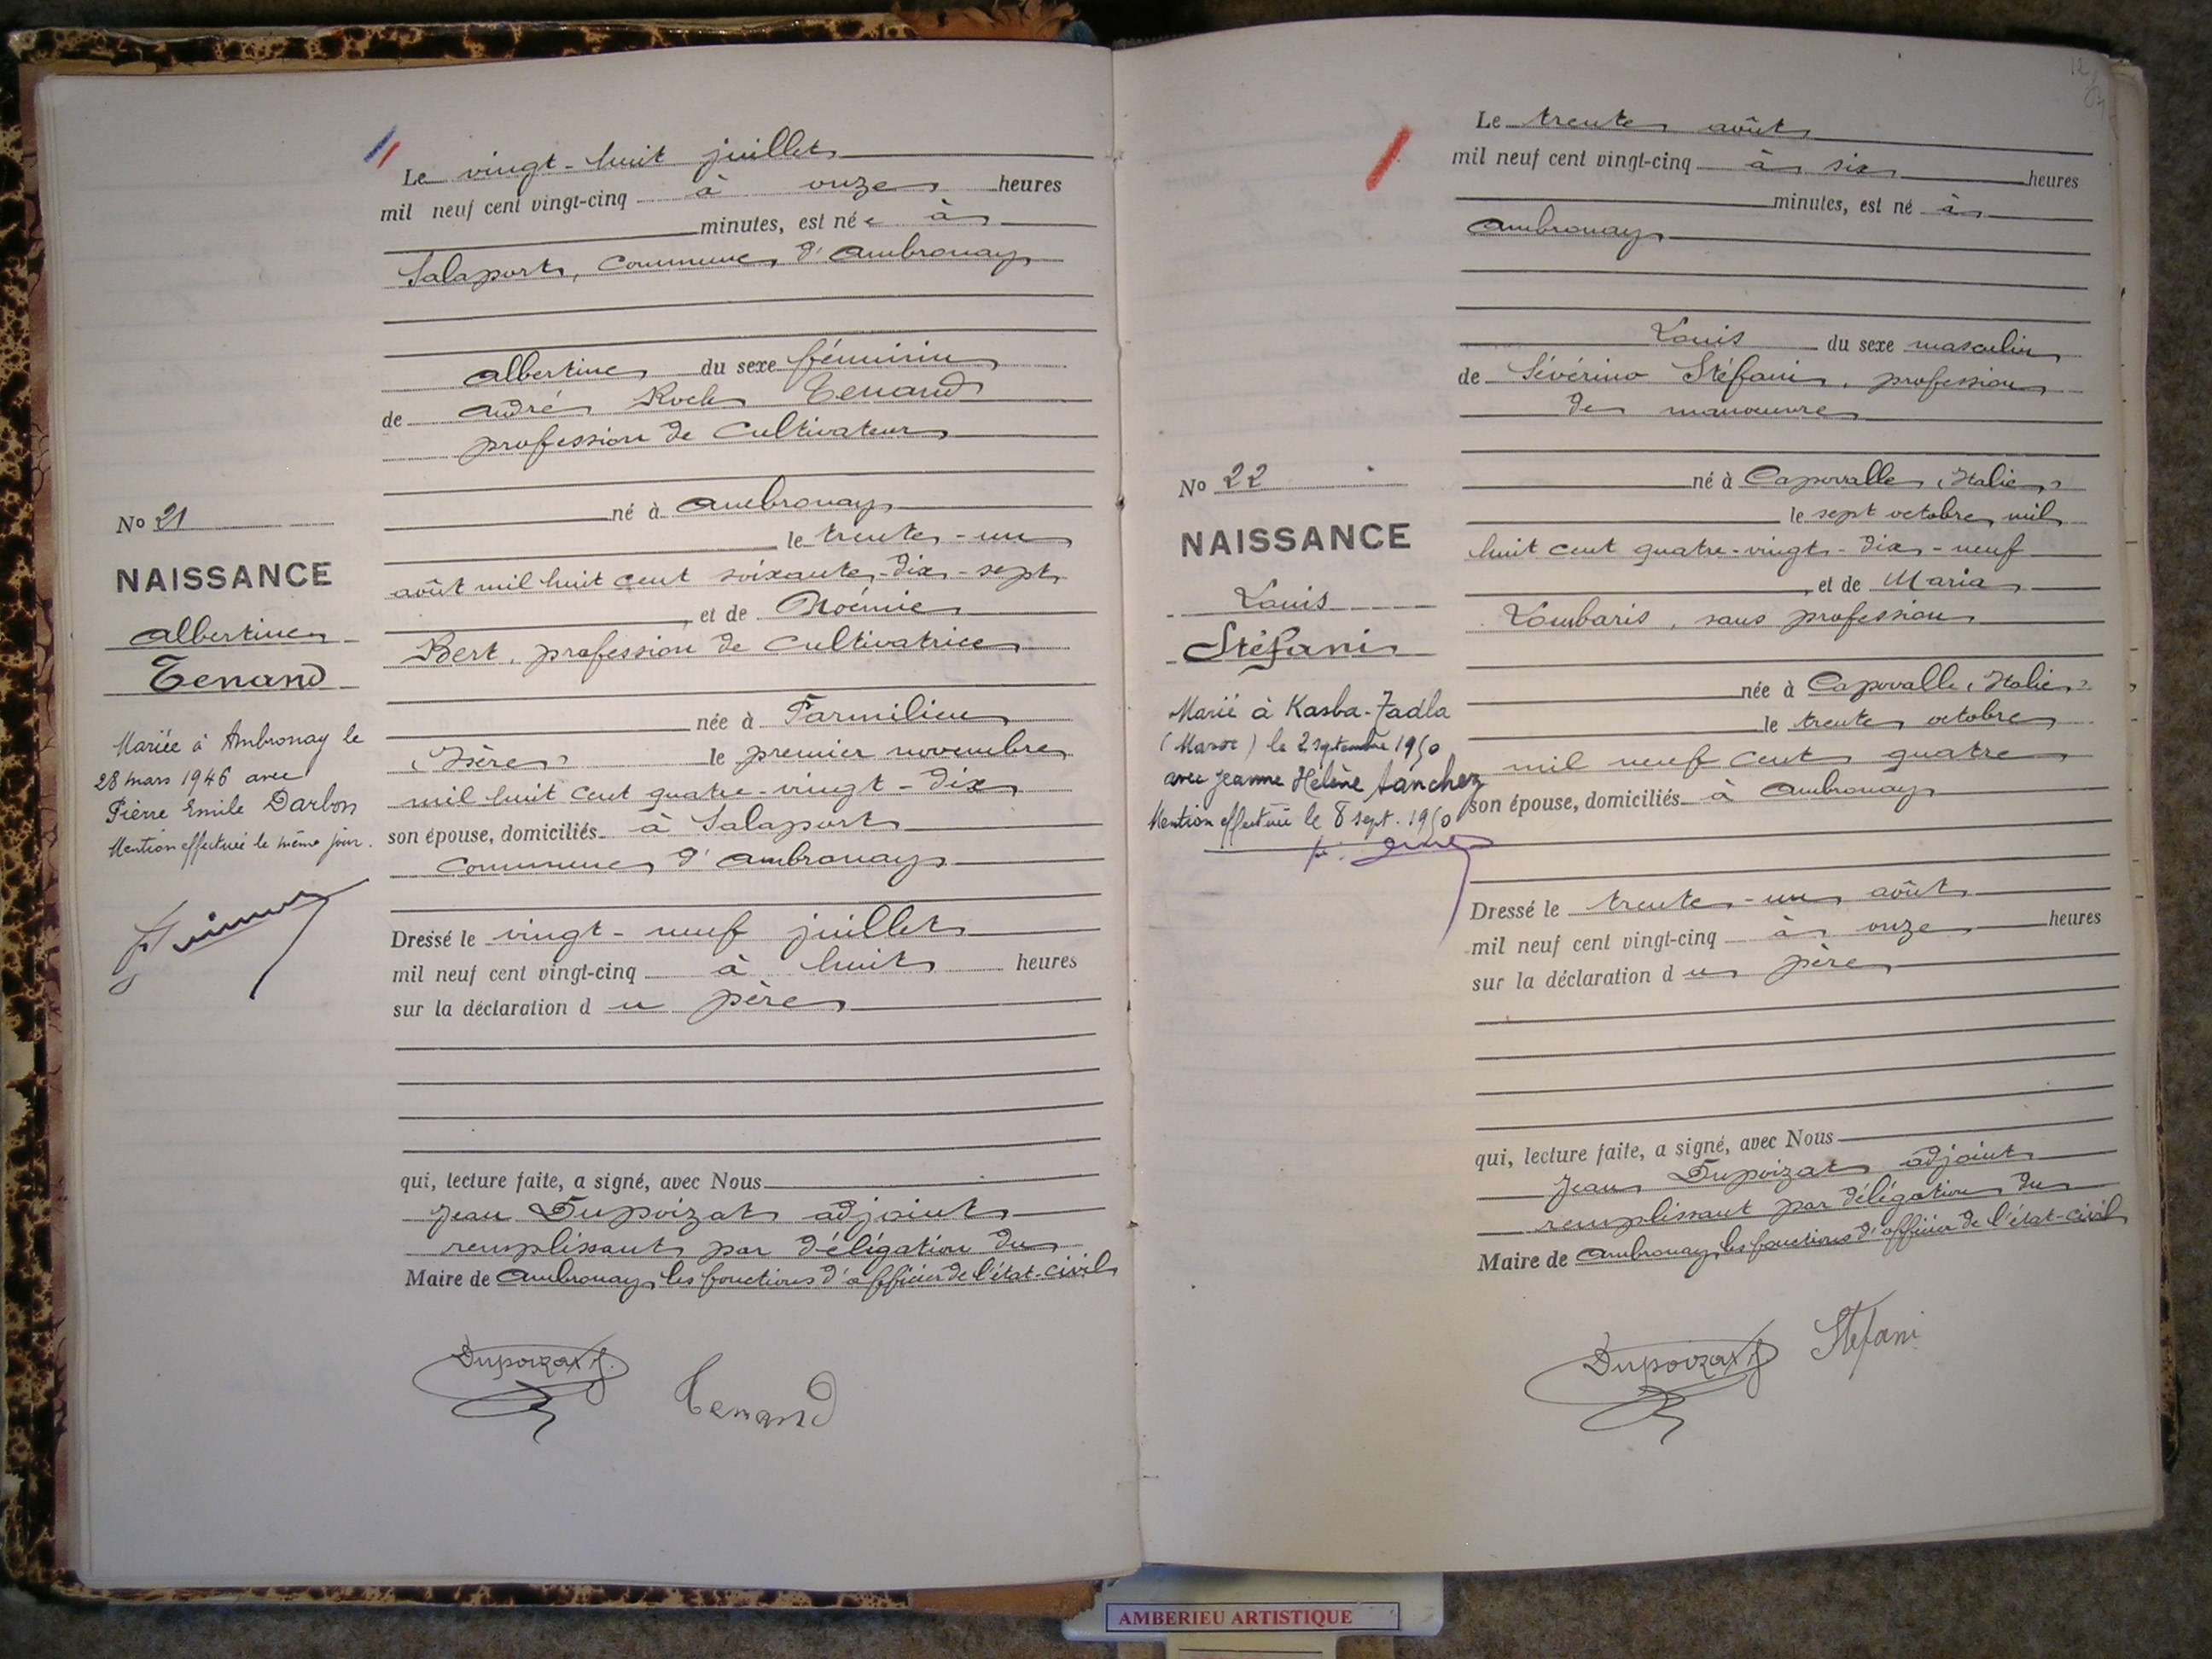 Le vingt-huit juillet
mil neuf cent vingt-cinq à onze heures
minutes, est née à
Salaport, commune d'Ambronay
Albertine du sexe féminin
de André Roch Tenand
profession de cultivateur
né à Ambronay
le trente-un
août mil huit cent soixante-dix-sept
, et de Noémie
Bert, profession de cultivatrice
née à Parmilieu
(Isère) le premier novembre
mil huit cent quatre-vingt-dix
son épouse, domiciliés à Salaport
commune d'Ambronay
Dressé le vingt-neuf juillet
mil neuf cent vingt-cinq à huit heures
sur la déclaration du père
qui, lecture faite, a signé, avec Nous
Jean Dupoizat adjoint
remplissant par délégation du
Maire de Ambronay, les fonctions d'officier de l'état-civil
Dupoizat J.
Tenand
No 21
NAISSANCE
Albertine
Tenand
Mariée à Ambronay le
28 mars 1946 avec
Pierre Emile Darbon
Mention effectuée le même jour.
Le trente août
mil neuf cent vingt-cinq à six heures
minutes, est né à
Ambronay
Louis du sexe masculin
de Sévérino Stéfani, profession
de manoeuvre
né à Capovalle (Italie)
le sept octobre mil
huit cent quatre-vingt-dix-neuf
, et de Maria
Lombaris, sans profession
née à Capovalle (Italie)
le trente octobre
mil neuf cent quatre
son épouse, domiciliés à Ambronay
Dressé le trente-un août
mil neuf cent vingt-cinq à onze heures
sur la déclaration du père
qui, lecture faite, a signé, avec Nous
Jean Dupoizat adjoint
remplissant par délégation du
Maire de Ambronay, les fonctions d'officier de l'état-civil
Dupoizat J
Stefani
No 22
NAISSANCE
Louis
Stéfani
Marié à Kasba-Tadla
(Maroc) le 2 septembre 1950
avec Jeanne Hélène Sanchez
Mention effectuée le 8 sept. 1950
AMBERIEU ARTISTIQUE